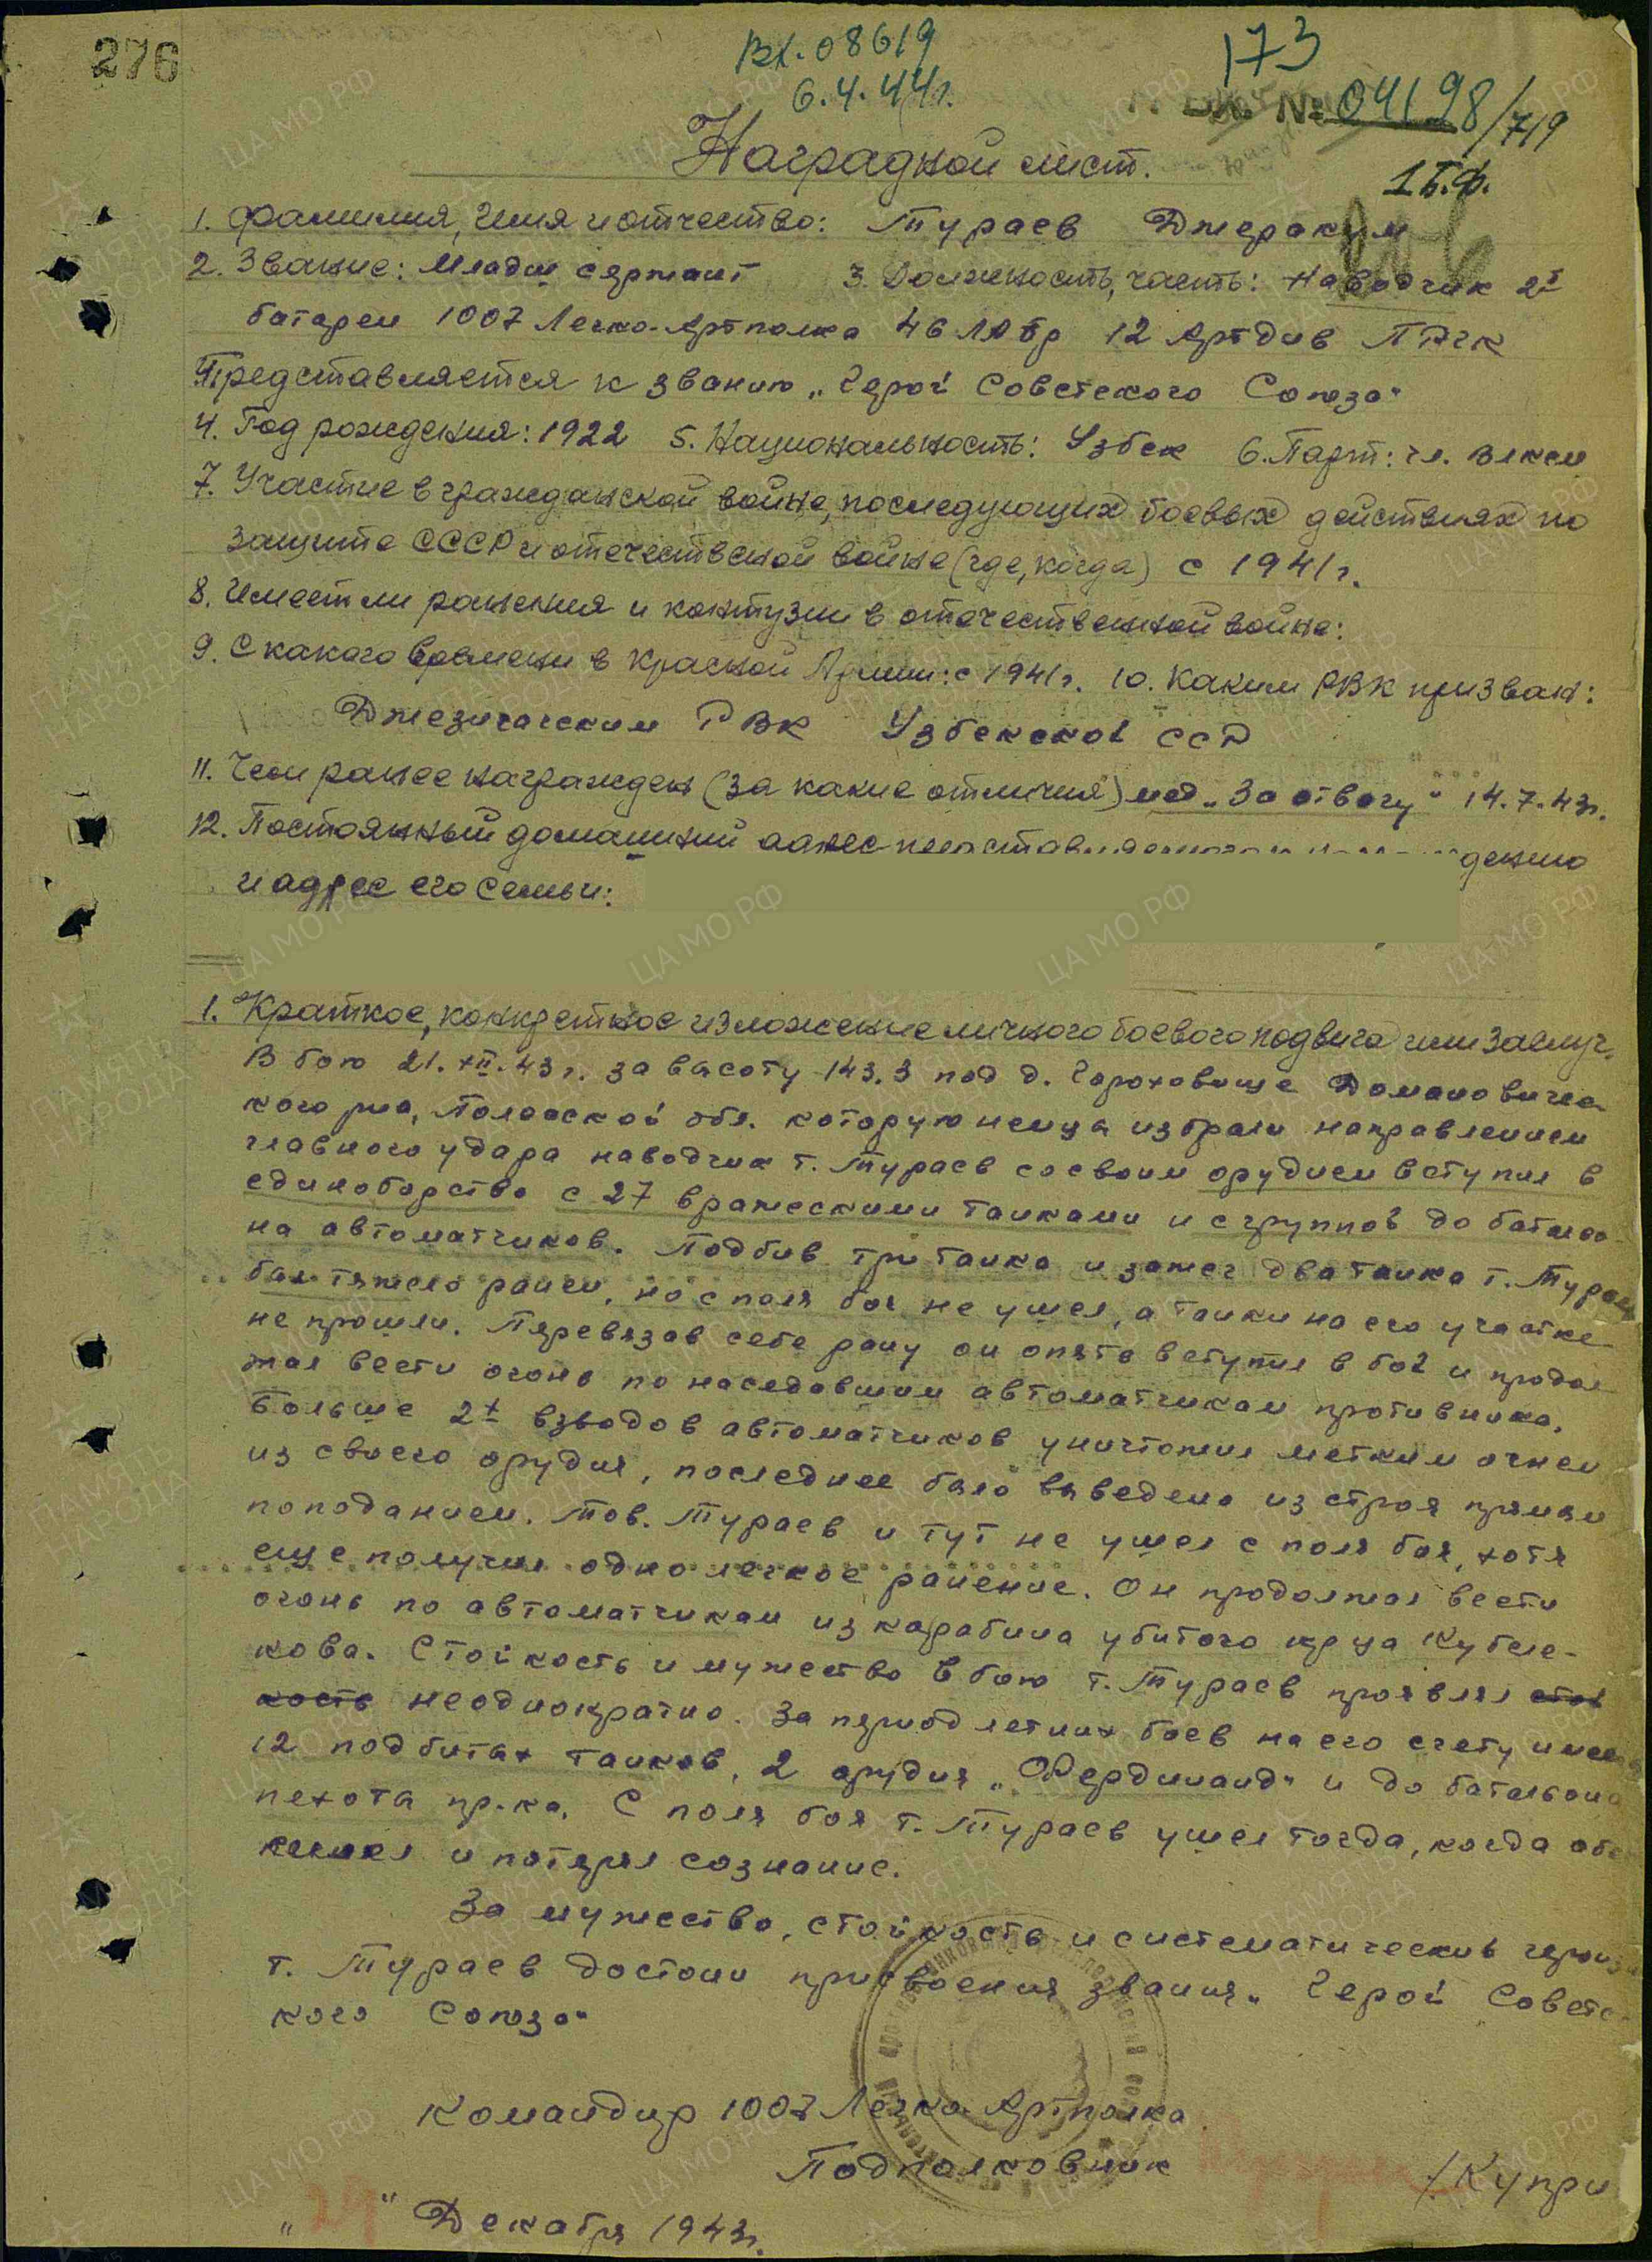 276
Вх. 08619
6.4.44г.
173
Вх. № 04198/719
1 Б.Ф.
Наградной лист.
1. Фамилия, Имя и отчество: Тураев Джеракул
2. Звание: Младш сержант 3. Должность, часть: Наводчик 2й
батареи 1007 Легко-Артполка 46 ЛАбр 12 Артдив РГК
Представляется к званию „Герой Советского Союза"
4. Год рождения: 1922 5. Национальность: Узбек 6. Парт: чл. ВЛКСМ
7. Участие в гражданской войне, последующих боевых действиях по
защите СССР и отечественной войне (где, когда) с 1941г.
8. Имеет ли ранения и контузии в отечественной войне:
9. С какого времени в Красной Армии: с 1941г. 10. Каким РВК призван:
Джезигагским РВК Узбекской ССР
11. Чем ранее награжден (за какие отличия) мед „За отвагу" 14.7.43г.
12. Постоянный домашний адрес представляемого к награждению
и адрес его семьи:
1. Краткое, конкретное изложение личного боевого подвига или заслуг.
В бою 21.XII.43г. за высоту 143.3 под д. Гороховище Домановичес
кого р-на, Полесской обл. которую немцы избрали направлением
главного удара наводчик т. Тураев со своим орудием вступил в
единоборство с 27 вражескими танками и с группой до батальо
на автоматчиков. Подбив три танка и зажег два танка т. Тураев
был тяжело ранен, но с поля боя не ушел, а танки на его участке
не прошли. Перевязав себе рану он опять вступил в бой и продол
жал вести огонь по наседавшим автоматчикам противника.
Больше 2х взводов автоматчиков уничтожил метким огнем
из своего орудия, последнее было выведено из строя прямым
поподанием. Тов. Тураев и тут не ушел с поля боя, хотя
еще получил одно легкое ранение. Он продолжал вести
огонь по автоматчикам из карабина убитого кр-ца Кубеле-
кова. Стойкость и мужество в бою т. Тураев проявлял стой
кость неоднократно. За период летних боев на его счету имеет
12 подбитых танков, 2 орудия „Фердинанд" и до батальона
пехоты пр-ка. С поля боя т. Тураев ушел тогда, когда обес
силел и потерял сознание.
За мужество, стойкость и систематический героизм
т. Тураев достоин присвоения звания „Герой Советс-
кого Союза"
Командир 1007 Легко-Артполка
Подполковник /Купри
„29" Декабря 1943г.
ЦАМО РФ
ПАМЯТЬ НАРОДА